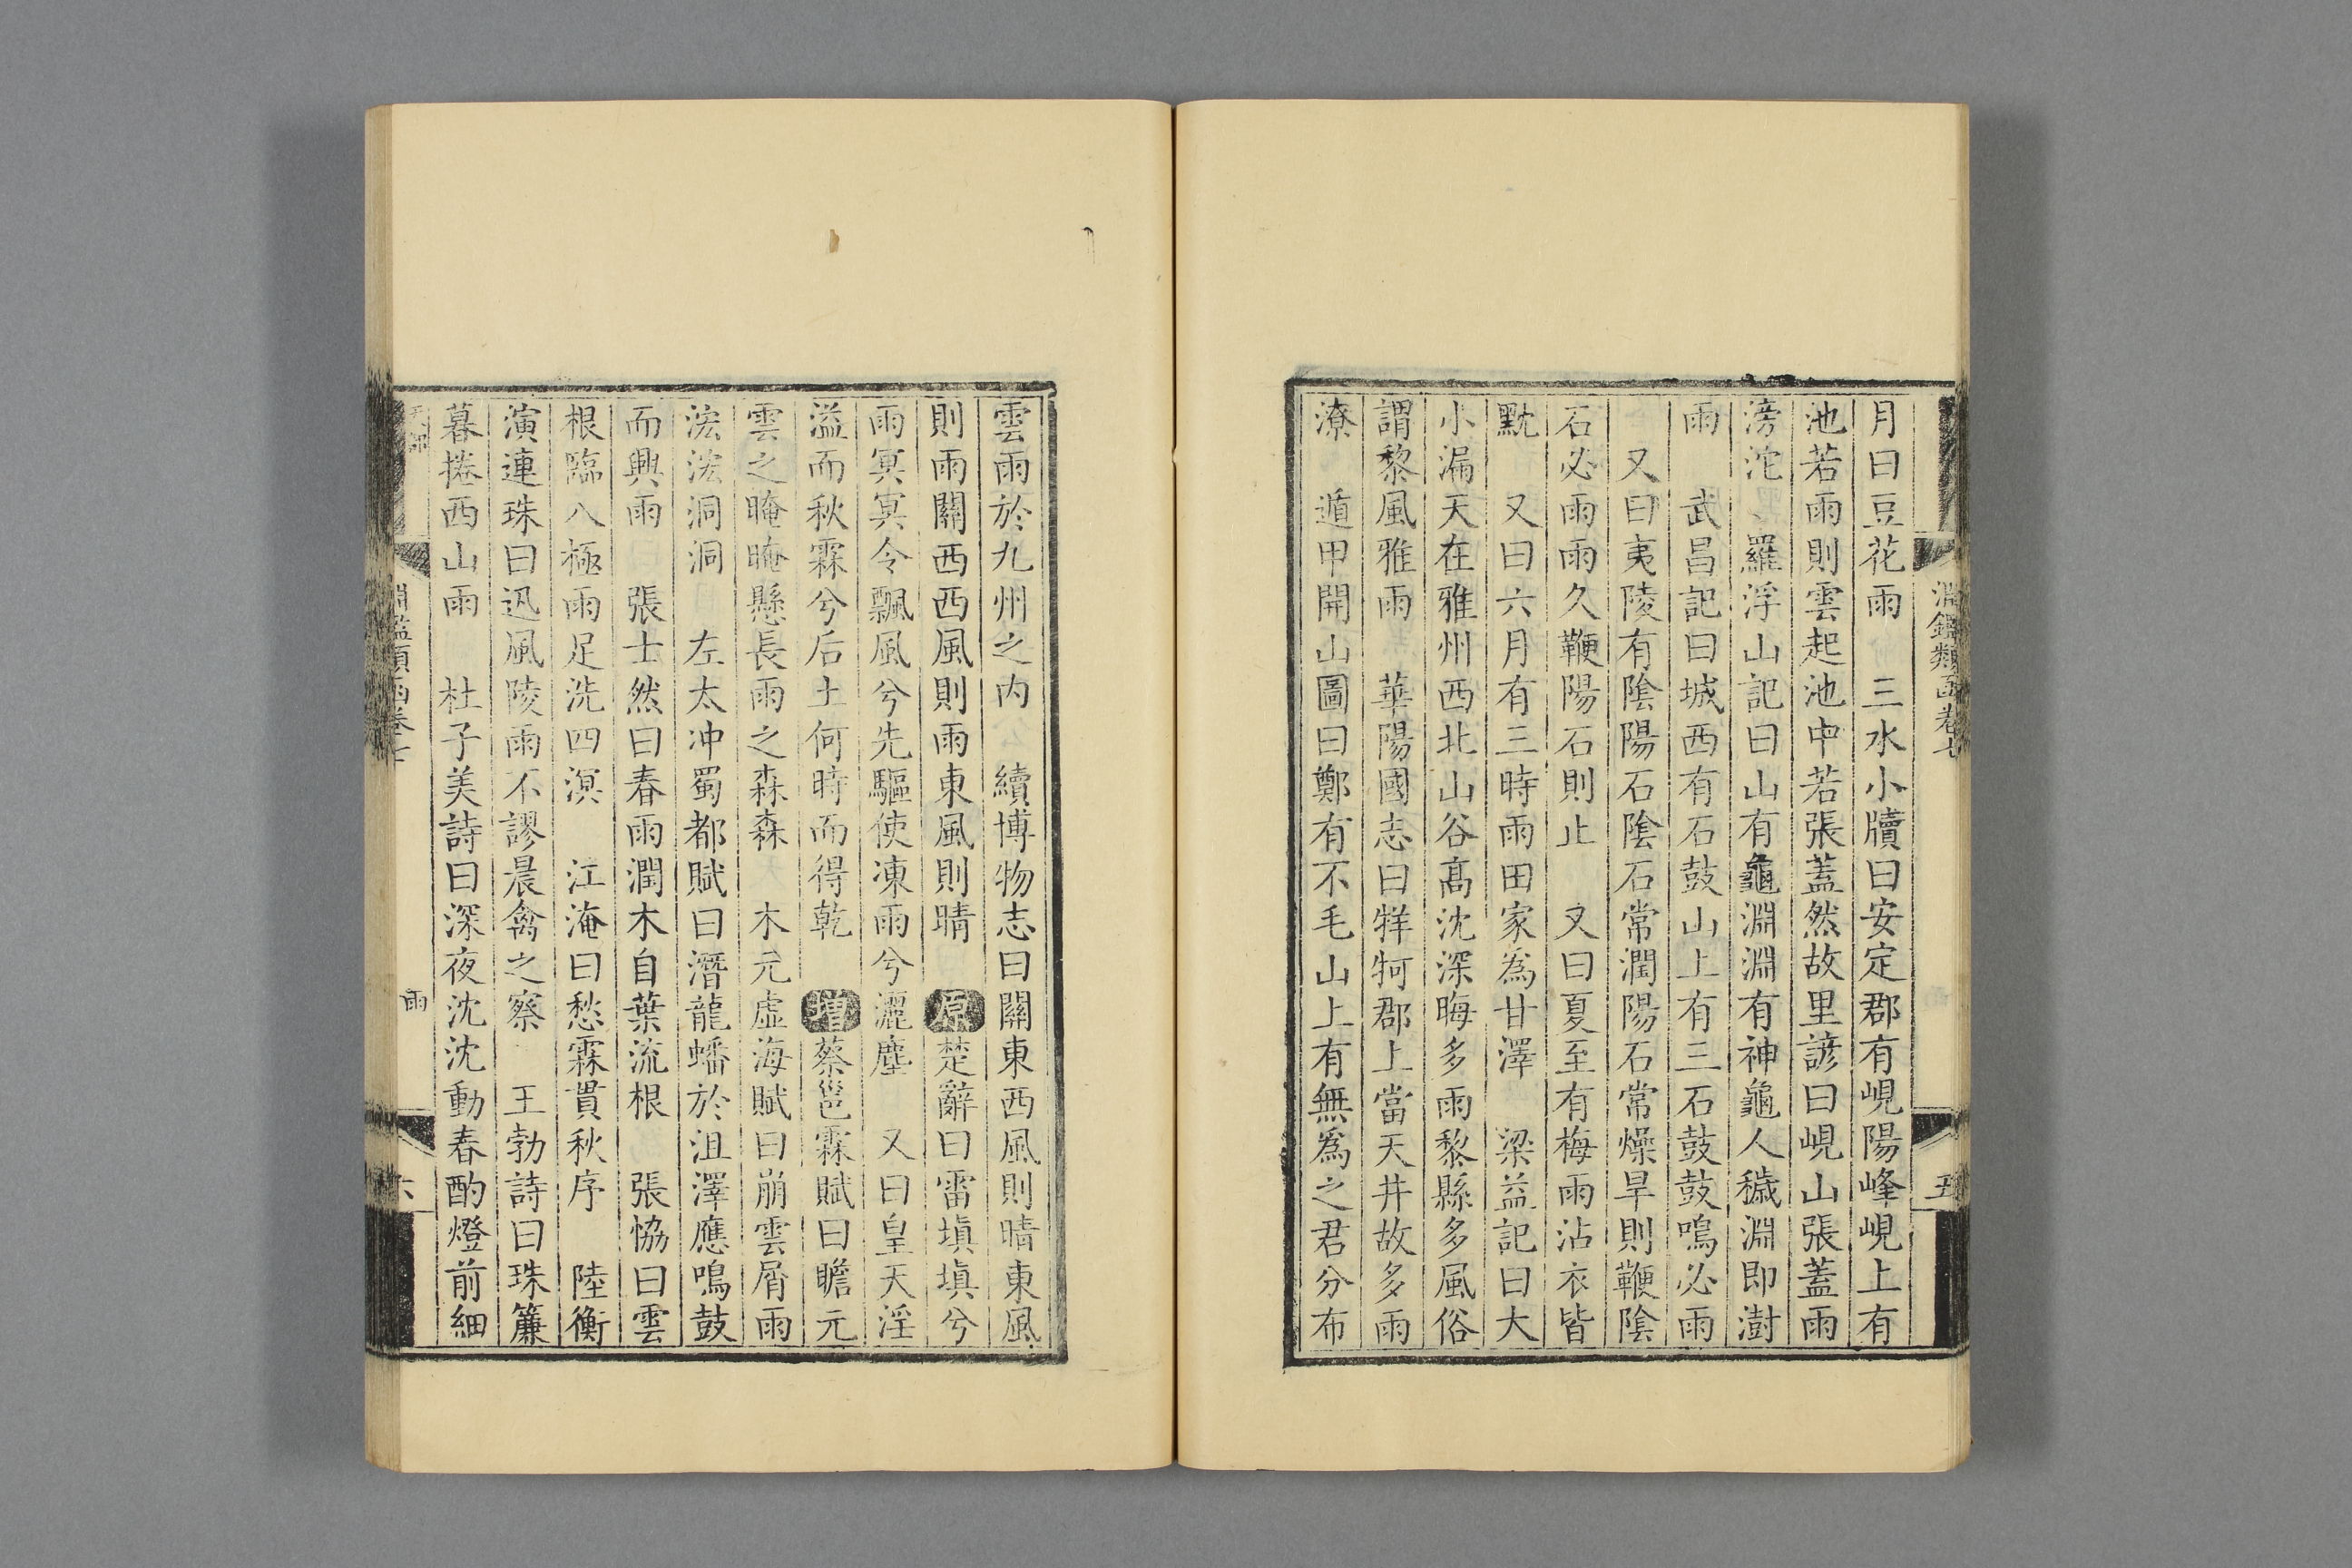 淵鑑類函卷七
五
月曰豆花雨 三水小牘曰安定郡有峴陽峰峴上有
池若雨則雲起池中若張蓋然故里諺曰峴山張蓋雨
滂沱 羅浮山記曰山有龜淵淵有神龜人穢淵即澍
雨 武昌記曰城西有石鼓山上有三石鼓鼓鳴必雨
又曰夷陵有陰陽石陰石常潤陽石常燥旱則鞭陰
石必雨雨久鞭陽石則止 又曰夏至有梅雨沾衣皆
黕 又曰六月有三時雨田家為甘澤 梁益記曰大
小漏天在雅州西北山谷高沈深晦多雨黎縣多風俗
謂黎風雅雨 華陽國志曰牂牁郡上當天井故多雨
潦 遁甲開山圖曰鄭有不毛山上有無為之君分布
雲雨於九州之內 續博物志曰關東西風則晴東風
則雨關西西風則雨東風則晴 原楚辭曰雷塡塡兮
雨冥冥令飄風兮先驅使凍雨兮灑塵 又曰皇天淫
溢而秋霖兮后土何時而得乾 增蔡邕霖賦曰瞻元
雲之晻晻懸長雨之森森 木元虛海賦曰崩雲屑雨
浤浤洞洞 左太冲蜀都賦曰潛龍蟠於沮澤應鳴鼓
而興雨 張士然曰春雨潤木自葉流根 張恊曰雲
根臨八極雨足洗四溟 江淹曰愁霖貫秋序 陸衡
演連珠曰迅風陵雨不謬晨禽之察 王勃詩曰珠簾
暮捲西山雨 杜子美詩曰深夜沈沈動春酌燈前細
淵鑑類函卷七
雨
六